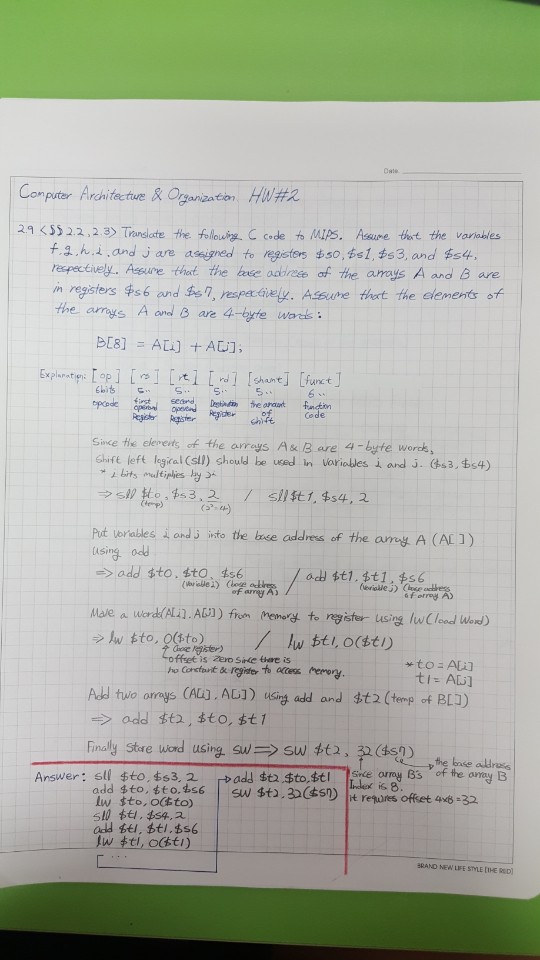 Date.
Computer Architecture & Organization HW#2
2.9 <§§ 2.2, 2.3> Translate the following C code to MIPS. Assume that the variables
f, g, h, i, and j are assigned to registers $s0, $s1, $s3, and $s4,
respectively. Assume that the base address of the arrays A and B are
in registers $s6 and $s7, respectively. Assume that the elements of
the arrays A and B are 4-byte words:
B[8] = A[i] + A[j];
Explanation: [op] [rs] [rt] [rd] [shamt] [funct]
6bits 5.. 5.. 5.. 5.. 6..
opcode first operand Register second operand Register Destination Register the amount of shift function code
Since the elements of the arrays A & B are 4-byte words,
Shift left logical (sll) should be used in variables i and j. ($s3, $s4)
* i bits multiplies by 2ⁱ
⇒ sll $t0, $s3, 2 / sll $t1, $s4, 2
(temp) (2²=4)
Put variables i and j into the base address of the array A (A[ ])
using add
⇒ add $t0, $t0, $s6 / add $t1, $t1, $s6
(variable i) (base address of array A) (variable j) (base address of array A)
Make a words(A[i], A[j]) from memory to register using lw (load word)
⇒ lw $t0, 0($t0) / lw $t1, 0($t1)
(base register)
offset is zero since there is
no constant & register to access memory.
* t0 = A[i]
t1 = A[j]
Add two arrays (A[i], A[j]) using add and $t2 (temp of B[])
⇒ add $t2, $t0, $t1
Finally store word using sw ⇒ sw $t2, 32($s7)
the base address
of the array B
since array B's
Index is 8.
it requires offset 4x8=32
Answer: sll $t0, $s3, 2
add $t0, $t0, $s6
lw $t0, 0($t0)
sll $t1, $s4, 2
add $t1, $t1, $s6
lw $t1, 0($t1)
...
add $t2, $t0, $t1
sw $t2, 32($s7)
BRAND NEW LIFE STYLE [THE RED]